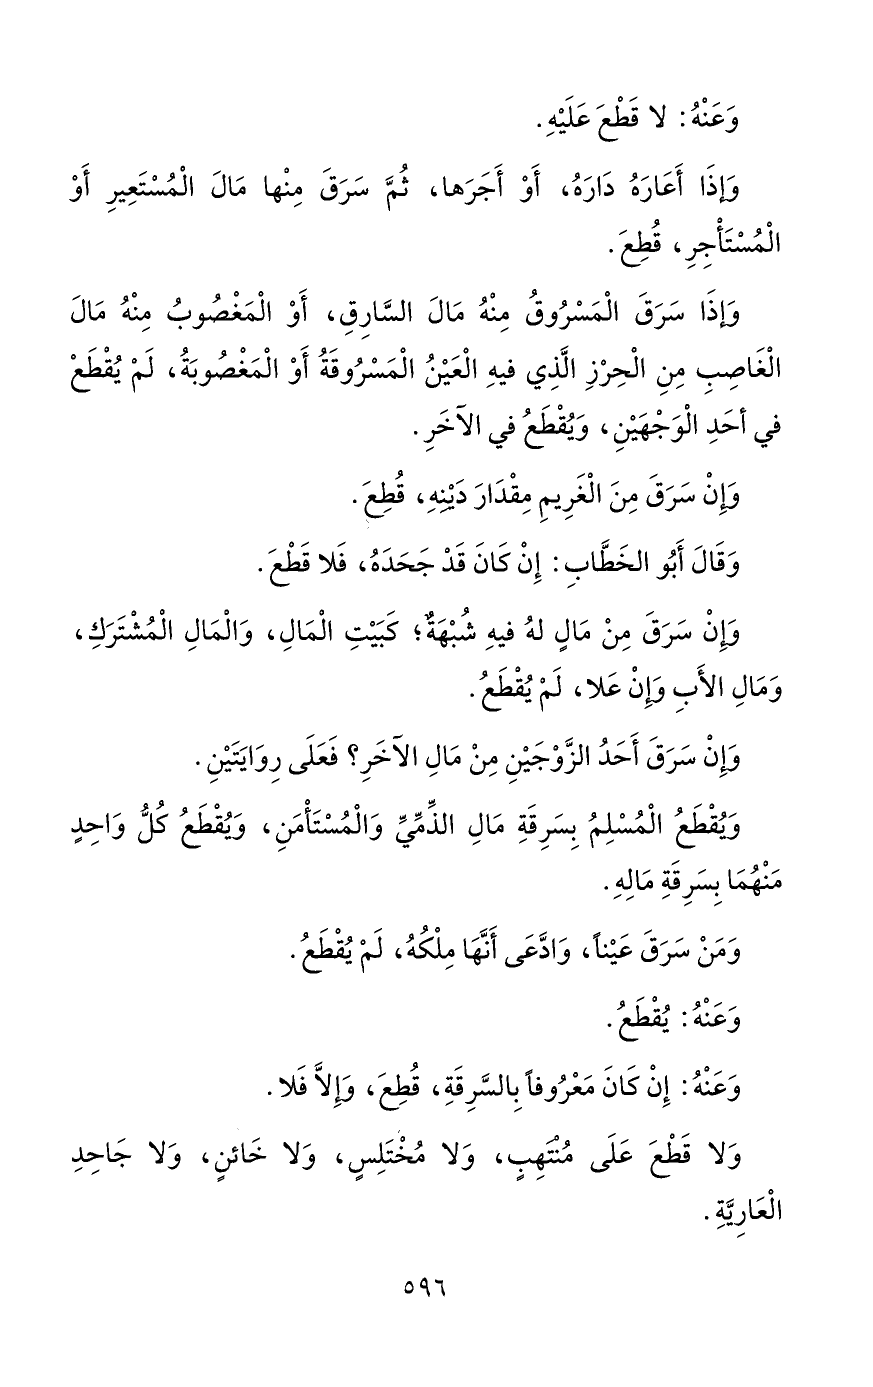 وَعَنْهُ: لا قَطْعَ عَلَيْهِ.
وَإِذَا أَعَارَهُ دَارَهُ، أَوْ أَجَرَها، ثُمَّ سَرَقَ مِنْها مَالَ الْمُسْتَعِيرِ أَوْ
الْمُسْتَأْجِرِ، قُطِعَ.
وَإِذَا سَرَقَ الْمَسْرُوقُ مِنْهُ مَالَ السَّارِقِ، أَوْ الْمَغْصُوبُ مِنْهُ مَالَ
الْغَاصِبِ مِنِ الْحِرْزِ الَّذِي فيهِ الْعَيْنُ الْمَسْرُوقَةُ أَوْ الْمَغْصُوبَةُ، لَمْ يُقْطَعْ
في أحَدِ الْوَجْهَيْنِ، وَيُقْطَعُ في الآخَرِ.
وَإِنْ سَرَقَ مِنَ الْغَرِيمِ مِقْدَارَ دَيْنِهِ، قُطِعَ.
وَقَالَ أَبُو الخَطَّابِ: إِنْ كَانَ قَدْ جَحَدَهُ، فَلا قَطْعَ.
وَإِنْ سَرَقَ مِنْ مَالٍ لهُ فيهِ شُبْهَةٌ؛ كَبَيْتِ الْمَالِ، وَالْمَالِ الْمُشْتَرَكِ،
وَمَالِ الأَبِ وَإِنْ عَلا، لَمْ يُقْطَعُ.
وَإِنْ سَرَقَ أَحَدُ الزَّوْجَيْنِ مِنْ مَالِ الآخَرِ؟ فَعَلَى رِوَايَتَيْنِ.
وَيُقْطَعُ الْمُسْلِمُ بِسَرِقَةِ مَالِ الذِّمِّيِّ وَالْمُسْتَأْمَنِ، وَيُقْطَعُ كُلُّ وَاحِدٍ
مَنْهُمَا بِسَرِقَةِ مَالِهِ.
وَمَنْ سَرَقَ عَيْناً، وَادَّعَى أَنَّهَا مِلْكُهُ، لَمْ يُقْطَعُ.
وَعَنْهُ: يُقْطَعُ.
وَعَنْهُ: إِنْ كَانَ مَعْرُوفاً بِالسَّرِقَةِ، قُطِعَ، وَإِلاَّ فَلا.
وَلا قَطْعَ عَلَى مُنْتَهِبٍ، وَلا مُخْتَلِسٍ، وَلا خَائنٍ، وَلا جَاحِدِ
الْعَارِيَّةِ.
٥٩٦